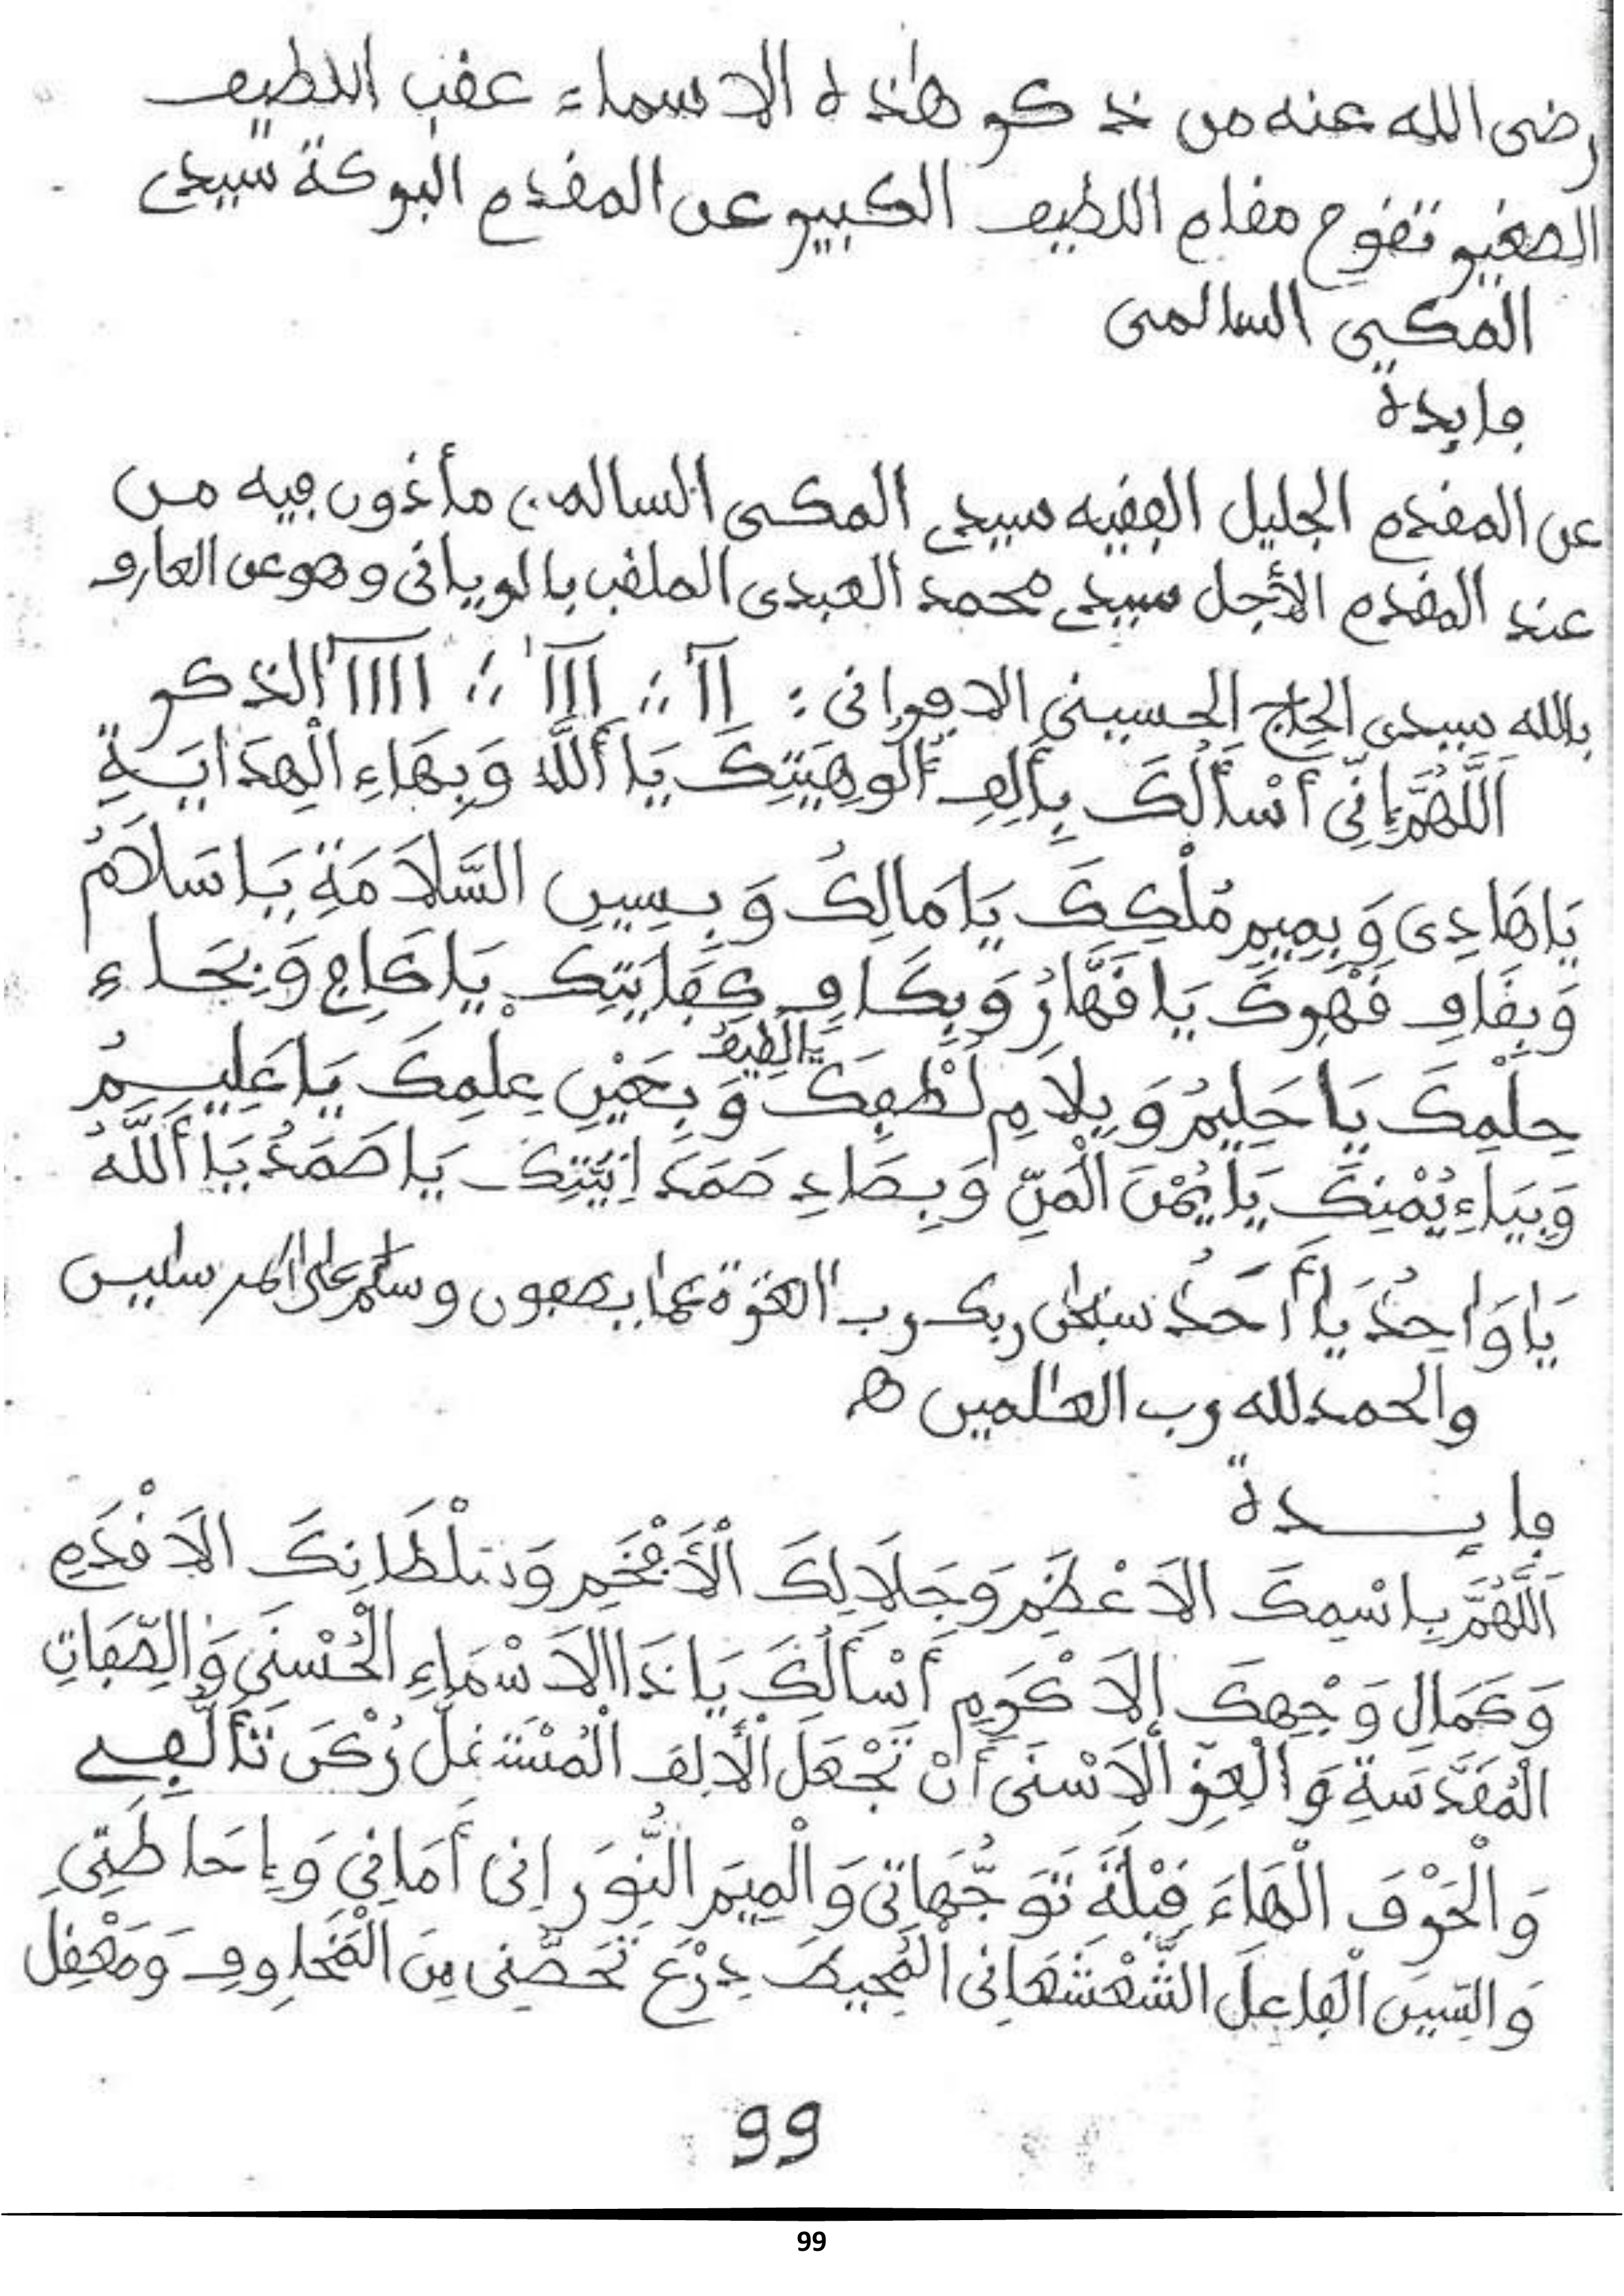 رضى الله عنه من ذكر هذه الاسماء عقب اللطيف
الصغير تقوم مقام اللطيف الكبير عن المقدم البركة سيدى
المكي السالمى
فايدة
عن المقدم الجليل الفقيه سيدي المكى السالمى مأذون فيه من
عند المقدم الأجل سيدي محمد العبدى الملقب بالويانى وهو عن العارف
بالله سيدى الحاج الحسيني الافرانى : الذكر
اَللَّهُمَّ إِنِّى أَسْأَلُكَ بِأَلِفِ أُلُوهِيَتِكَ يَا أَللَّه وَبِهَاءِ الْهِدَايَةِ
يَا هَادِى وَبِمِيمِ مُلْكِكَ يَا مَالِكُ وَبِسِينِ السَّلَامَةِ يَا سَلَامُ
وَبِقَافِ قَهْرِكَ يَا قَهَّارُ وَبِكَافِ كِفَايَتِكَ يَا كَافِ وَبِحَاءِ
حِلْمِكَ يَا حَلِيمُ وَبِلَامِ لُطْفِكَ يَا لَطِيفُ وَبِعَيْنِ عِلْمِكَ يَا عَلِيمُ
وَبِيَاءِ يُمْنِكَ يَا يُمْنَ الْمَنِّ وَبِصَادِ صَمَدَانِيَّتِكَ يَا صَمَدُ يَا أَللَّهُ
يَا وَاحِدُ يَا أَحَدُ سبحن ربك رب العزة عما يصفون وسلم على المرسلين
والحمد لله رب العلمين ه
فايدة
اَللَّهُمَّ بِاسْمِكَ الَاعْظَمِ وَجَلَالِكَ الْأَفْخَمِ وَسُلْطَانِكَ الَاقْدَمِ
وَكَمَالِ وَجْهِكَ الَاكْرَمِ أَسْأَلُكَ يَا ذَا الَاسْمَاءِ الْحُسْنَى وَالصِّفَاتِ
الْمُقَدَّسَةِ وَالْعِزِّ الَاسْنَى أَنْ تَجْعَلَ الْأَلِفَ رُكْنَ تَأَلُّفِي
وَالْحَرْفَ الْهَاءَ قِبْلَةَ تَوَجُّهَاتِى وَالْمِيمَ النُّورَانِى أَمَانِي وَإِحَاطَتِى
وَالسِّينَ الْفَاعِلَ الشَّعْشَعَانِى الْمُحِيطَ دِرْعَ تَحَصُّنِى مِنَ الْمَخَاوِفِ وَمَعْقِلَ
99
99